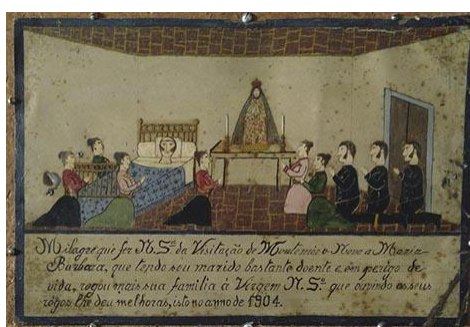 Milagre que fez N. S.ª da Visitação de Montemór o Novo a Maria
Barbara, que tendo seu marido bastante doente e em perigo de
vida, rogou mais sua familia à Virgem N. S.ª que ouvindo os seus
rógos lhe deu melhoras, isto no anno de 1904.